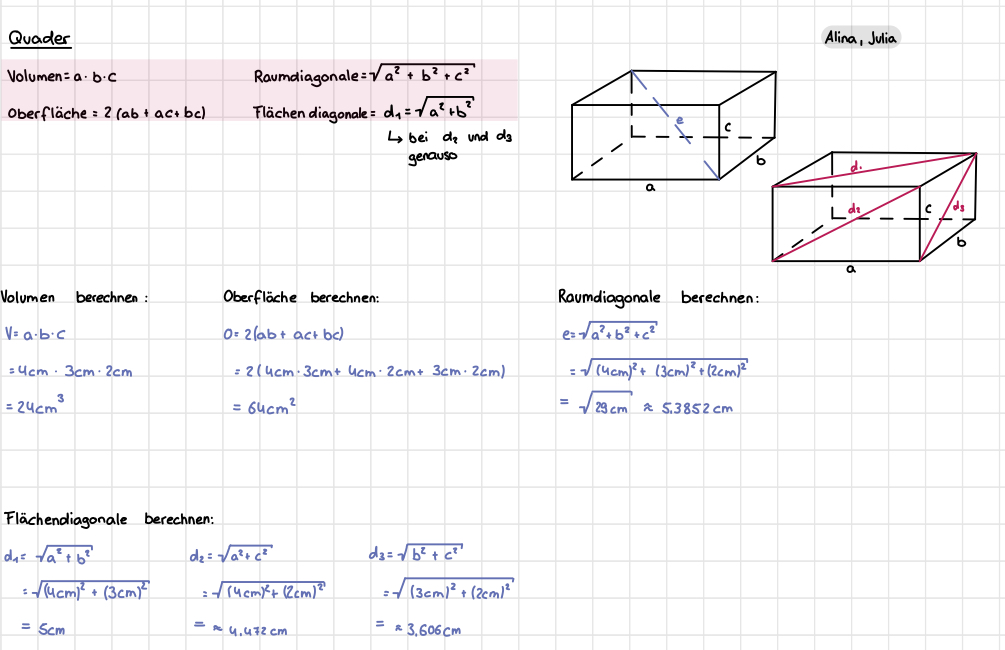 Quader
Alina, Julia
Volumen = a · b · c
Raumdiagonale = √a² + b² + c²
Oberfläche = 2 (ab + ac + bc)
Flächendiagonale = d₁ = √a² + b²
↳ bei d₂ und d₃
genauso
e
c
b
a
d₁
d₂
c
d₃
b
a
Volumen berechnen :
V = a · b · c
= 4cm · 3cm · 2cm
= 24cm³
Oberfläche berechnen:
O = 2(ab + ac + bc)
= 2 (4cm · 3cm + 4cm · 2cm + 3cm · 2cm)
= 64cm²
Raumdiagonale berechnen:
e = √a² + b² + c²
= √(4cm)² + (3cm)² + (2cm)²
= √29cm ≈ 5,3852 cm
Flächendiagonale berechnen:
d₁ = √a² + b²
= √(4cm)² + (3cm)²
= 5cm
d₂ = √a² + c²
= √(4cm)² + (2cm)²
= ≈ 4,472 cm
d₃ = √b² + c²
= √(3cm)² + (2cm)²
= ≈ 3,606 cm